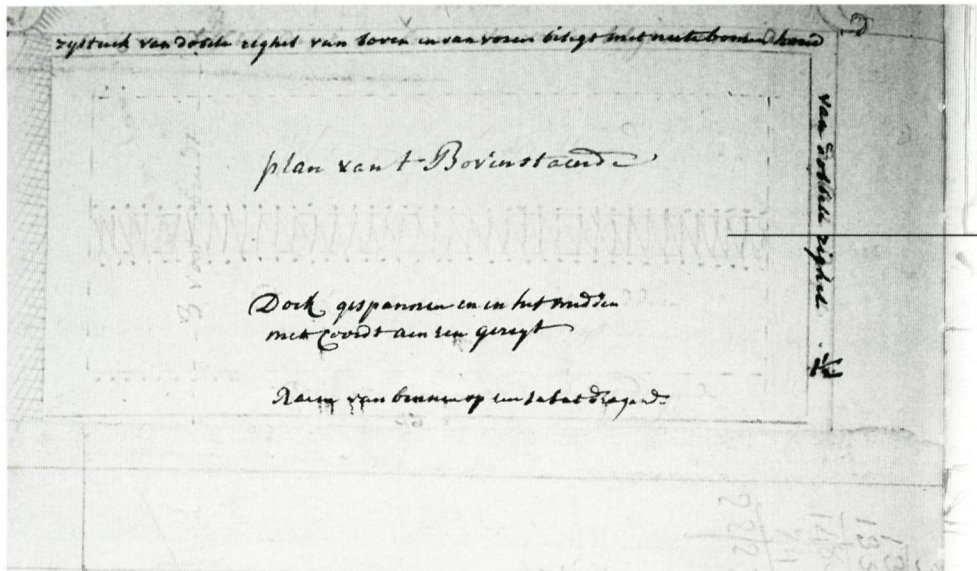 zijstuck van dobble righel van boven en van voren belegt met neutebomen haut
van dobbele righel
plan van t Bovenstaende
Doek gespannen en in het midden
met Coordt aen een geregt
Raem van binnen op een sabat dragende